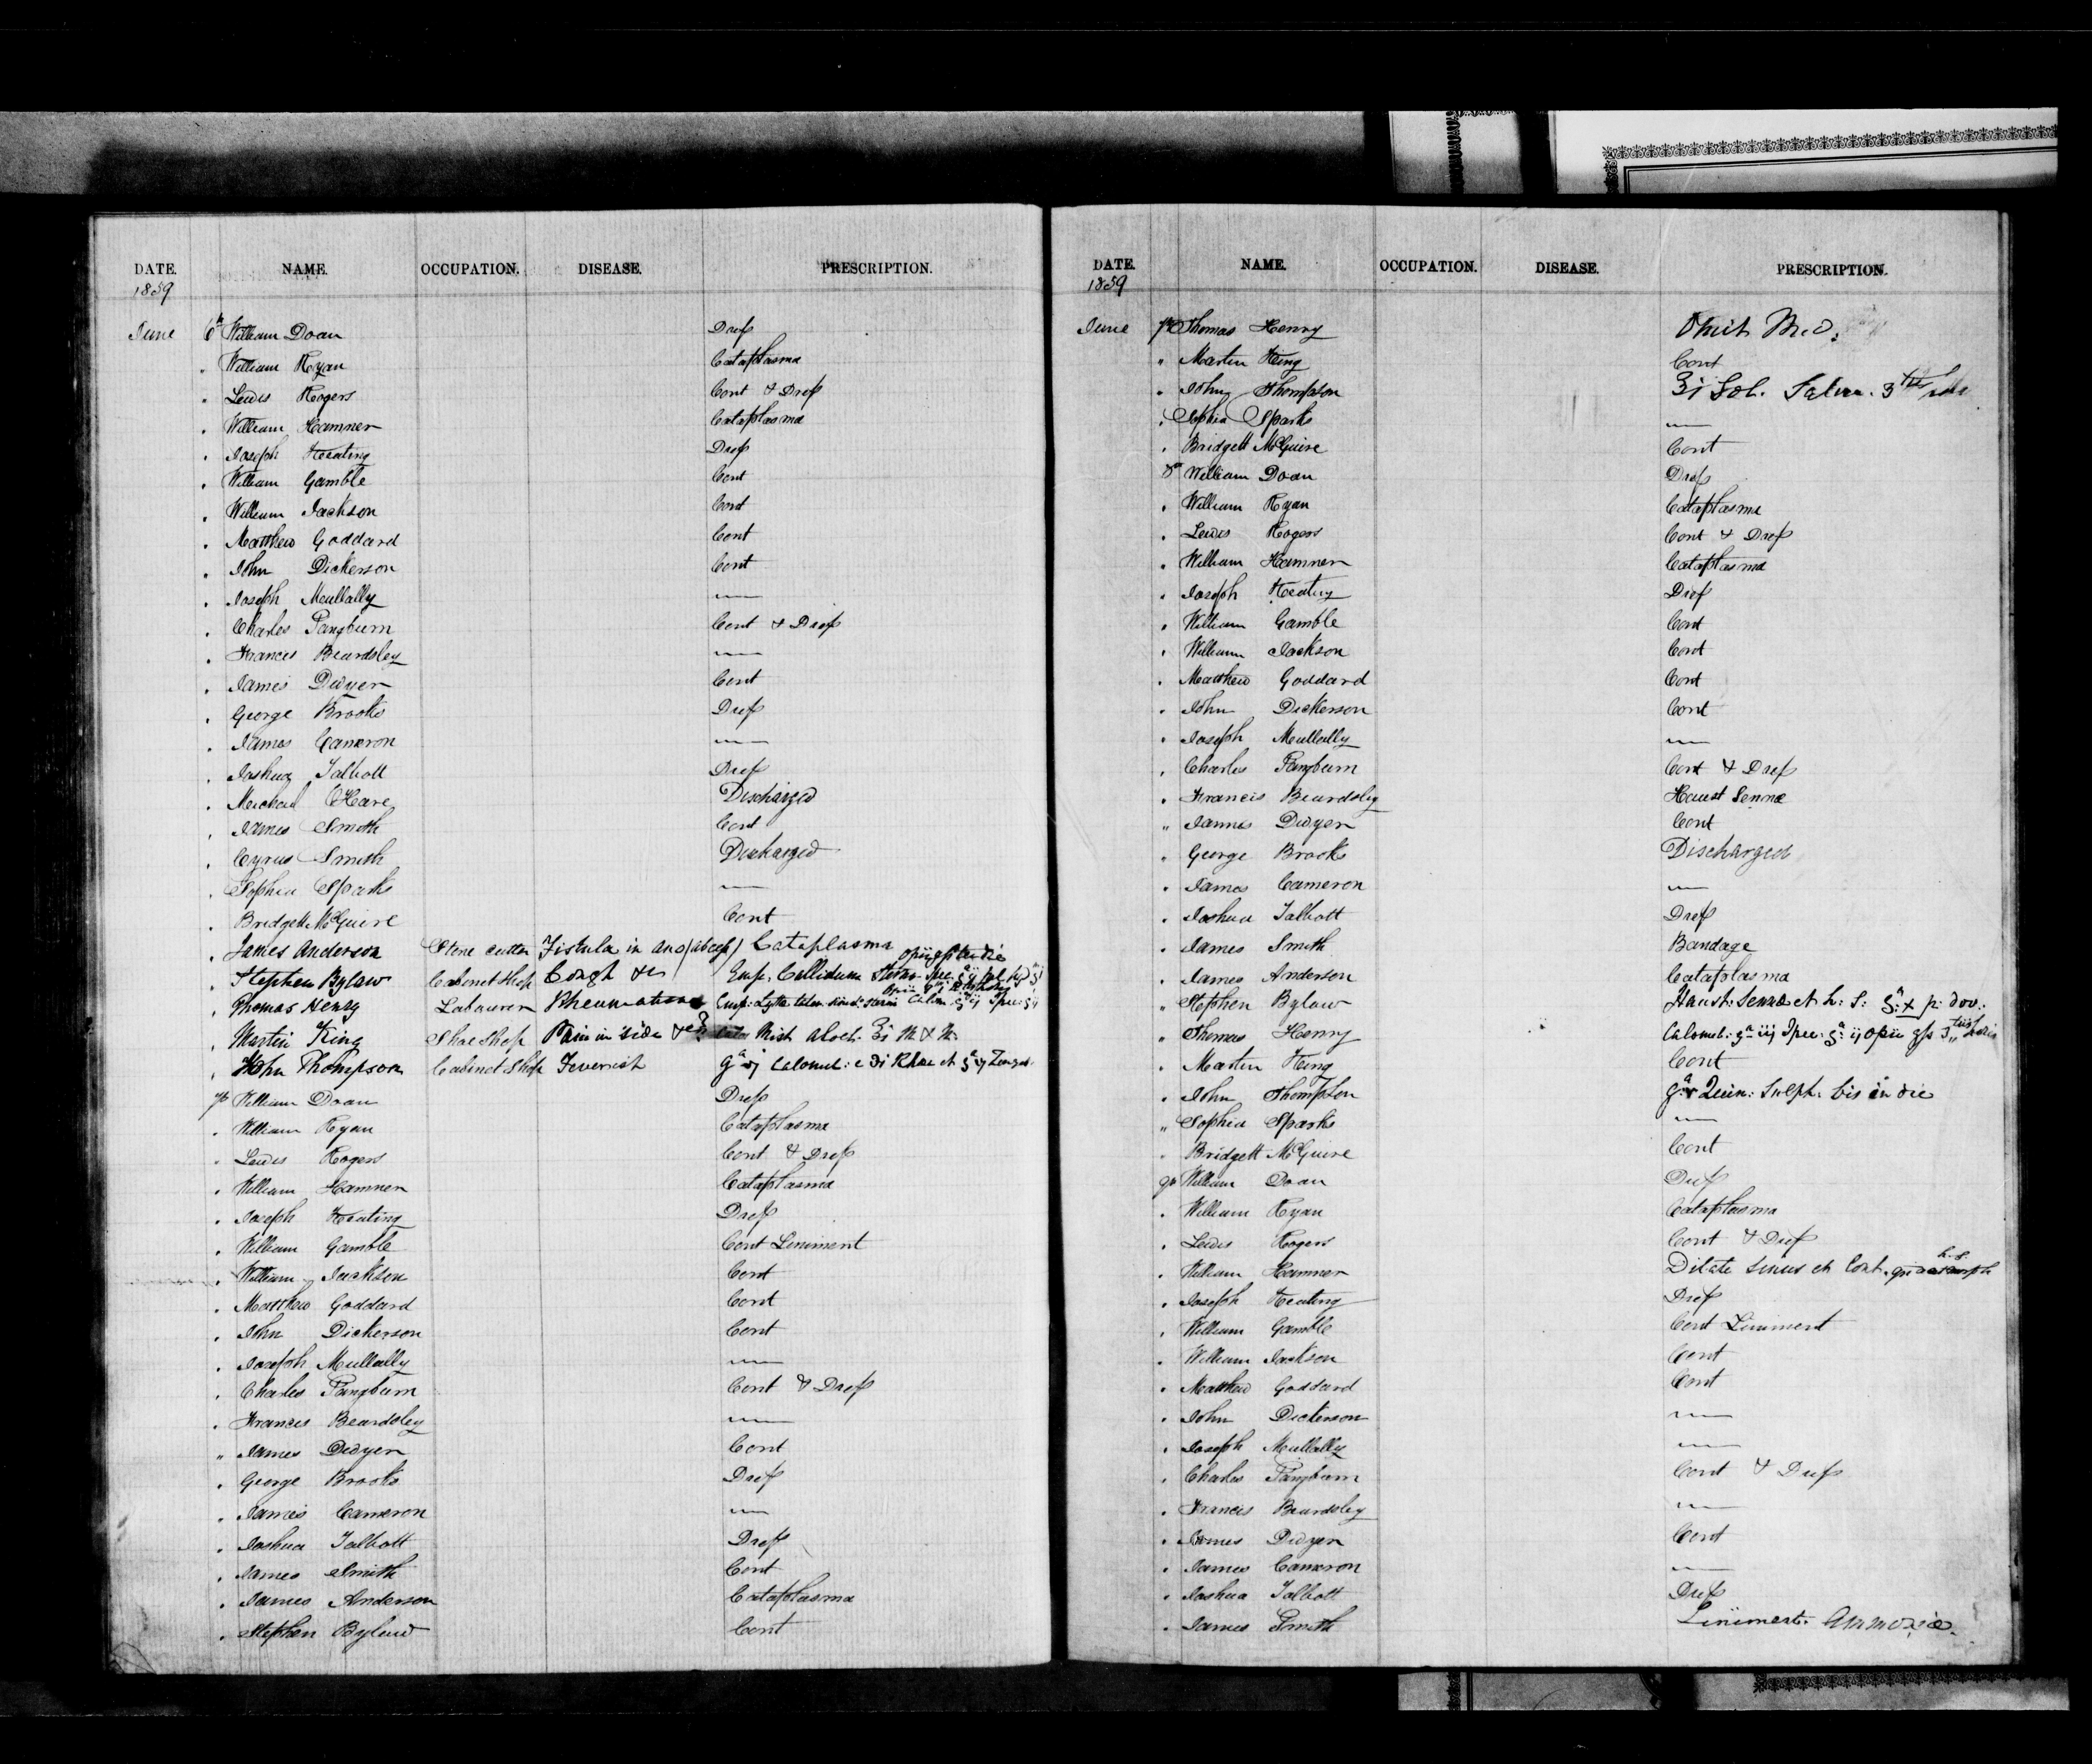 DATE. NAME. OCCUPATION. DISEASE. PRESCRIPTION.
1859
June 6th William Doan Dress
" William Ryan Cataplasma
" Lewis Rogers Cont & Dress
" William Hamner Cataplasma
" Joseph Keating Dress
" William Gamble Cont
" William Jackson Cont
" Matthew Goddard Cont
" John Dickerson Cont
" Joseph Mullally —
" Charles Pangburn Cont & Dress
" Francis Beardsley —
" James Dwyer Cont
" George Brooks Dress
" James Cameron —
" Joshua Talbott Dress
" Michael OHare Discharged
" James Smith Cont
" Cyrus Smith Discharged
" Sophia Sparks —
" Bridgett McGuire Cont
" James Anderson Stone cutter Fistula in ano (abcess) Cataplasma
" Stephen Bylaw Cabinet Shop Cough &c Emp. Callidum
" Thomas Henry Labourer Rheumatism Emp: Lytta
" Martin King Shoe Shop Pain in side &c Mist Aloet. ʒi N & M.
" John Thompson Cabinet Shop Feverish Calomel: c ℈i Rhae et
7th William Doan Dress
" William Ryan Cataplasma
" Lewis Rogers Cont & Dress
" William Hamner Cataplasma
" Joseph Keating Dress
" William Gamble Cont Liniment
" William Jackson Cont
" Matthew Goddard Cont
" John Dickerson Cont
" Joseph Mullally —
" Charles Pangburn Cont & Dress
" Francis Beardsley —
" James Dwyer Cont
" George Brooks Dress
" James Cameron —
" Joshua Talbott Dress
" James Smith Cont
" James Anderson Cataplasma
" Stephen Bylaw Cont
DATE. NAME. OCCUPATION. DISEASE. PRESCRIPTION.
1859
June 7th Thomas Henry Omit Med.
" Martin King Cont
" John Thompson ʒi Sol. Salin. 3
" Sophia Sparks —
" Bridgett McGuire Cont
8th William Doan Dress
" William Ryan Cataplasma
" Lewis Rogers Cont & Dress
" William Hamner Cataplasma
" Joseph Keating Dress
" William Gamble Cont
" William Jackson Cont
" Matthew Goddard Cont
" John Dickerson Cont
" Joseph Mullally —
" Charles Pangburn Cont & Dress
" Francis Beardsley Haust Sennae
" James Dwyer Cont
" George Brooks Discharged
" James Cameron —
" Joshua Talbott Dress
" James Smith Bandage
" James Anderson Cataplasma
" Stephen Bylaw Haust: Sennae et h: s: gr: x p: dov:
" Thomas Henry Calomel: gr iij Ipec: gr: ij opii
" Martin King Cont
" John Thompson Quin: Sulph: bis in die
" Sophia Sparks —
" Bridgett McGuire Cont
9th William Doan Dress
" William Ryan Cataplasma
" Lewis Rogers Cont & Dress
" William Hamner Dilate sinus et Cont. h.s.
" Joseph Keating Dress
" William Gamble Cont Liniment
" William Jackson Cont
" Matthew Goddard Cont
" John Dickerson —
" Joseph Mullally —
" Charles Pangburn Cont & Dress
" Francis Beardsley —
" James Dwyer Cont
" James Cameron —
" Joshua Talbott Dress
" James Smith Liniment. Ammoniae.